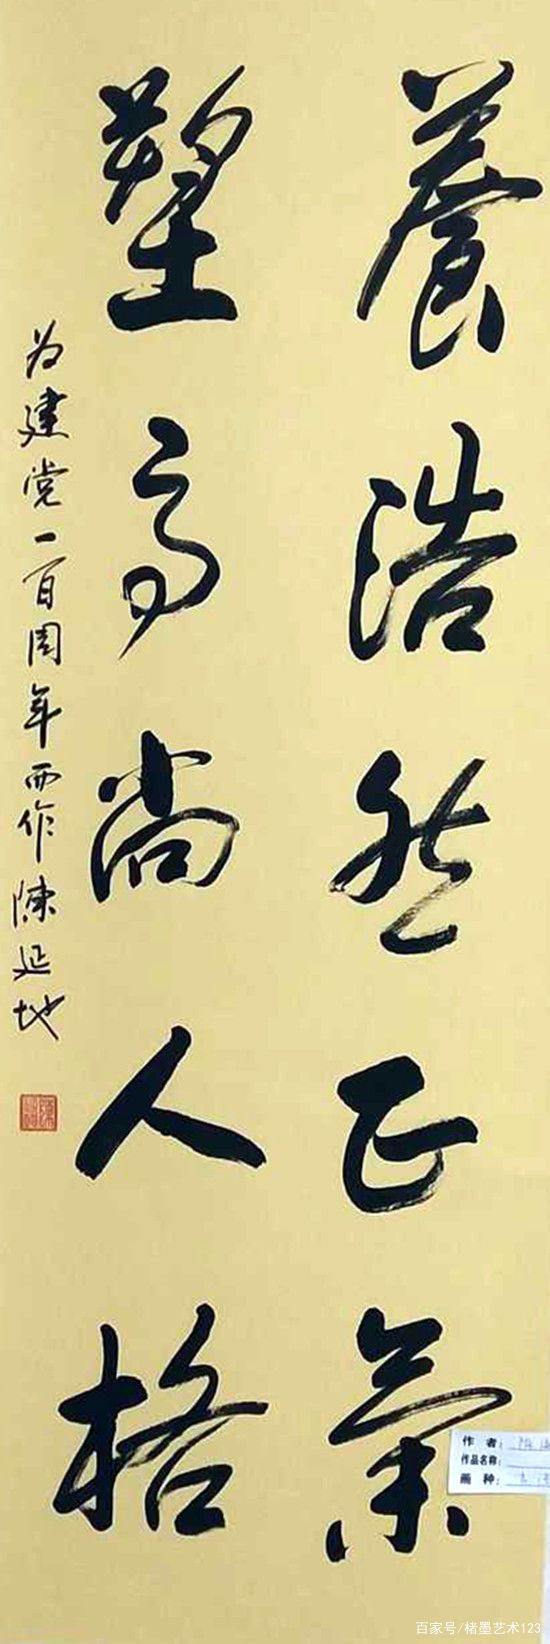 養浩然正氣
塑高尚人格
为建党一百周年而作 陳延地
作 者：
作品名称：
画 种：
百家号/楮墨艺术123